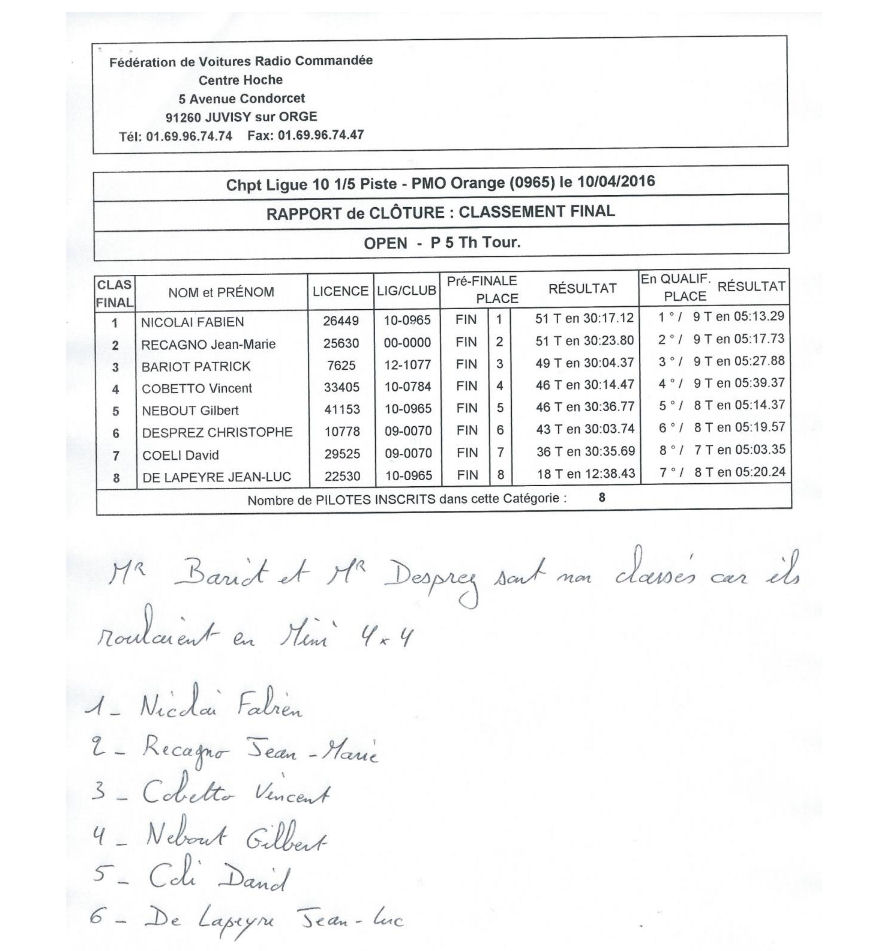 Fédération de Voitures Radio Commandée
Centre Hoche
5 Avenue Condorcet
91260 JUVISY sur ORGE
Tél: 01.69.96.74.74 Fax: 01.69.96.74.47
Chpt Ligue 10 1/5 Piste - PMO Orange (0965) le 10/04/2016
RAPPORT de CLÔTURE : CLASSEMENT FINAL
OPEN - P 5 Th Tour.
CLAS FINAL NOM et PRÉNOM LICENCE LIG/CLUB Pré-FINALE PLACE RÉSULTAT En QUALIF. PLACE RÉSULTAT
1 NICOLAI FABIEN 26449 10-0965 FIN 1 51 T en 30:17.12 1 ° / 9 T en 05:13.29
2 RECAGNO Jean-Marie 25630 00-0000 FIN 2 51 T en 30:23.80 2 ° / 9 T en 05:17.73
3 BARIOT PATRICK 7625 12-1077 FIN 3 49 T en 30:04.37 3 ° / 9 T en 05:27.88
4 COBETTO Vincent 33405 10-0784 FIN 4 46 T en 30:14.47 4 ° / 9 T en 05:39.37
5 NEBOUT Gilbert 41153 10-0965 FIN 5 46 T en 30:36.77 5 ° / 8 T en 05:14.37
6 DESPREZ CHRISTOPHE 10778 09-0070 FIN 6 43 T en 30:03.74 6 ° / 8 T en 05:19.57
7 COELI David 29525 09-0070 FIN 7 36 T en 30:35.69 8 ° / 7 T en 05:03.35
8 DE LAPEYRE JEAN-LUC 22530 10-0965 FIN 8 18 T en 12:38.43 7 ° / 8 T en 05:20.24
Nombre de PILOTES INSCRITS dans cette Catégorie : 8
MR Bariot et MR Desprez sont non classés car ils
roulaient en Mini 4x4
1 - Nicolai Fabien
2 - Recagno Jean-Marie
3 - Cobetto Vincent
4 - Nebout Gilbert
5 - Coli David
6 - De Lapeyre Jean-Luc